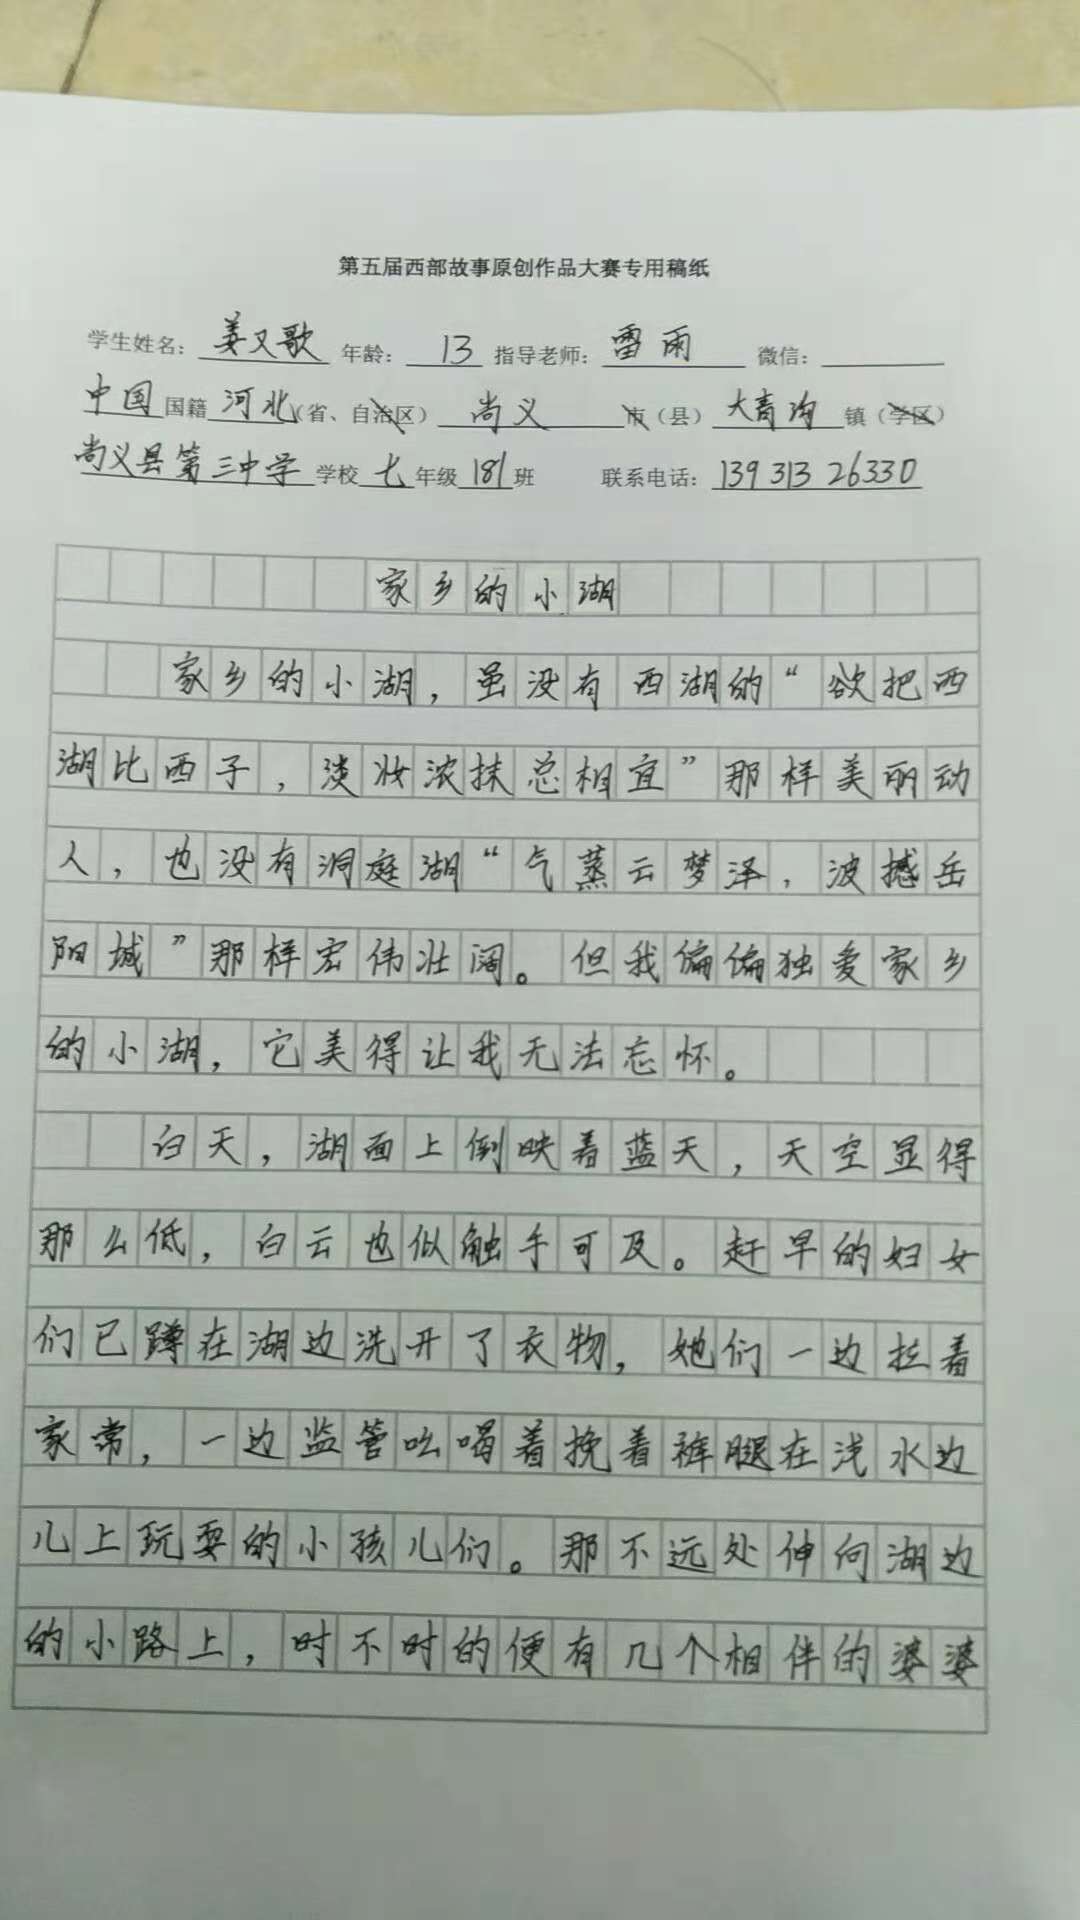 第五届西部故事原创作品大赛专用稿纸
学生姓名：姜又歌 年龄：13 指导老师：雷雨 微信：
中国国籍河北（省、自治区）尚义市（县）大青沟镇（学区）
尚义县第三中学学校七年级181班 联系电话：13931326330
家乡的小湖
家乡的小湖，虽没有西湖的“欲把西
湖比西子，淡妆浓抹总相宜”那样美丽动
人，也没有洞庭湖“气蒸云梦泽，波撼岳
阳城”那样宏伟壮阔。但我偏偏独爱家乡
的小湖，它美得让我无法忘怀。
白天，湖面上倒映着蓝天，天空显得
那么低，白云也似触手可及。赶早的妇女
们已蹲在湖边洗开了衣物，她们一边拉着
家常，一边监管吆喝着挽着裤腿在浅水边
儿上玩耍的小孩儿们。那不远处伸向湖边
的小路上，时不时的便有几个相伴的婆婆